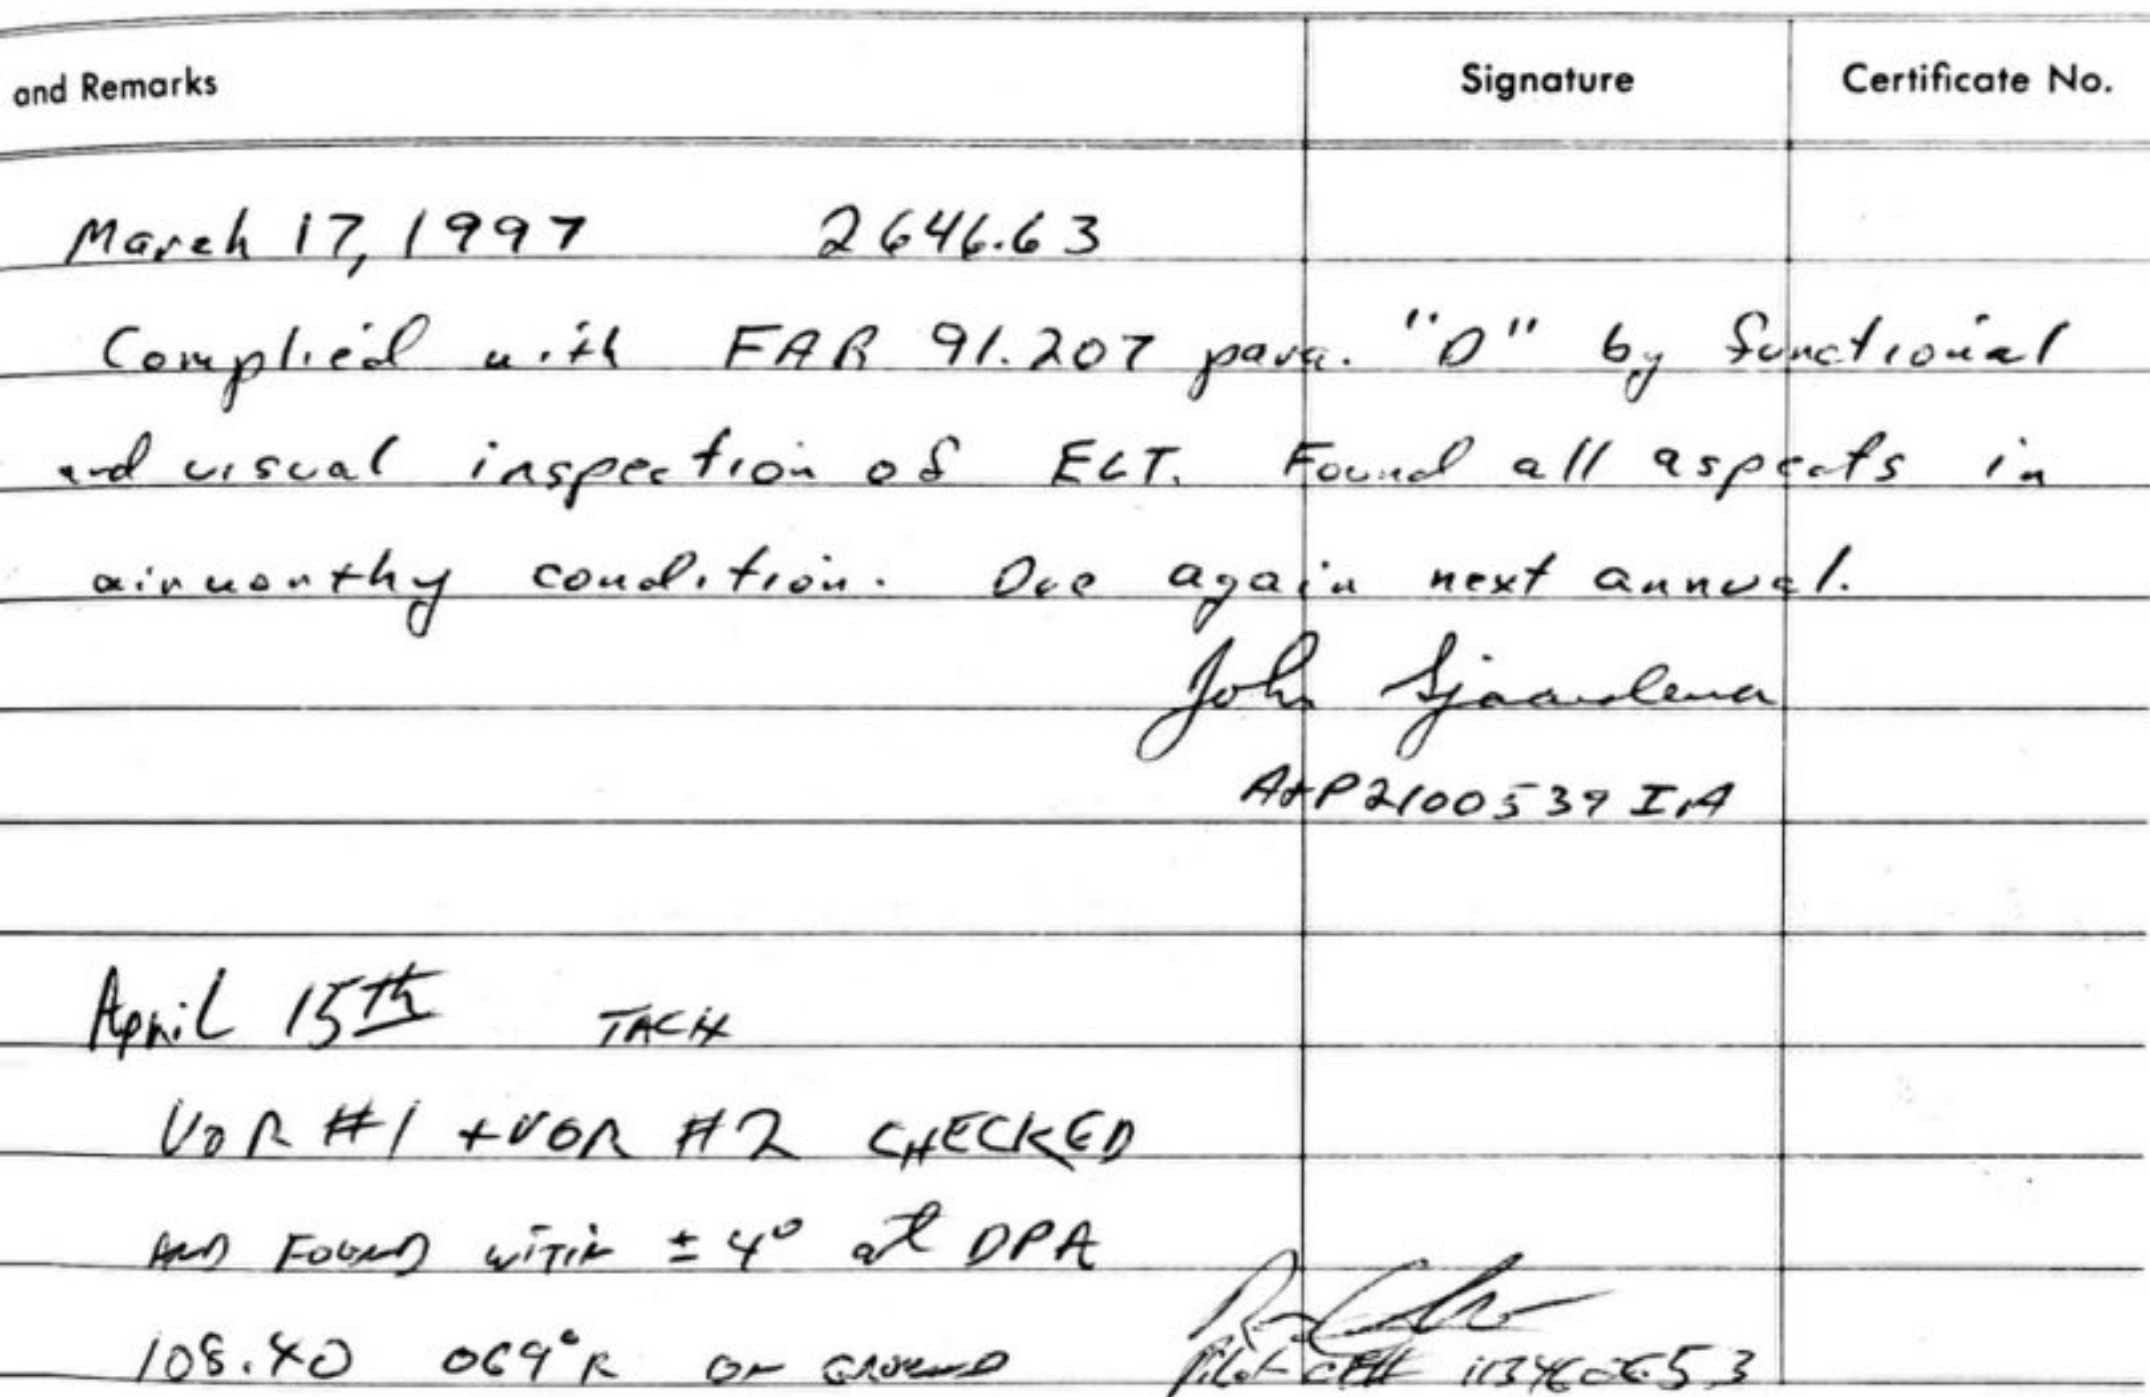 and Remarks Signature Certificate No.
March 17, 1997 2646.63
Complied with FAR 91.207 para. "D" by functional
and visual inspection of ELT. Found all aspects in
airworthy condition. Due again next annual.
John Sjaardema
A&P2100539 IA
April 15th TACH
VOR #1 + VOR #2 CHECKED
AND FOUND witin ± 4° at DPA
108.40 069°R on GROUND
Pilot